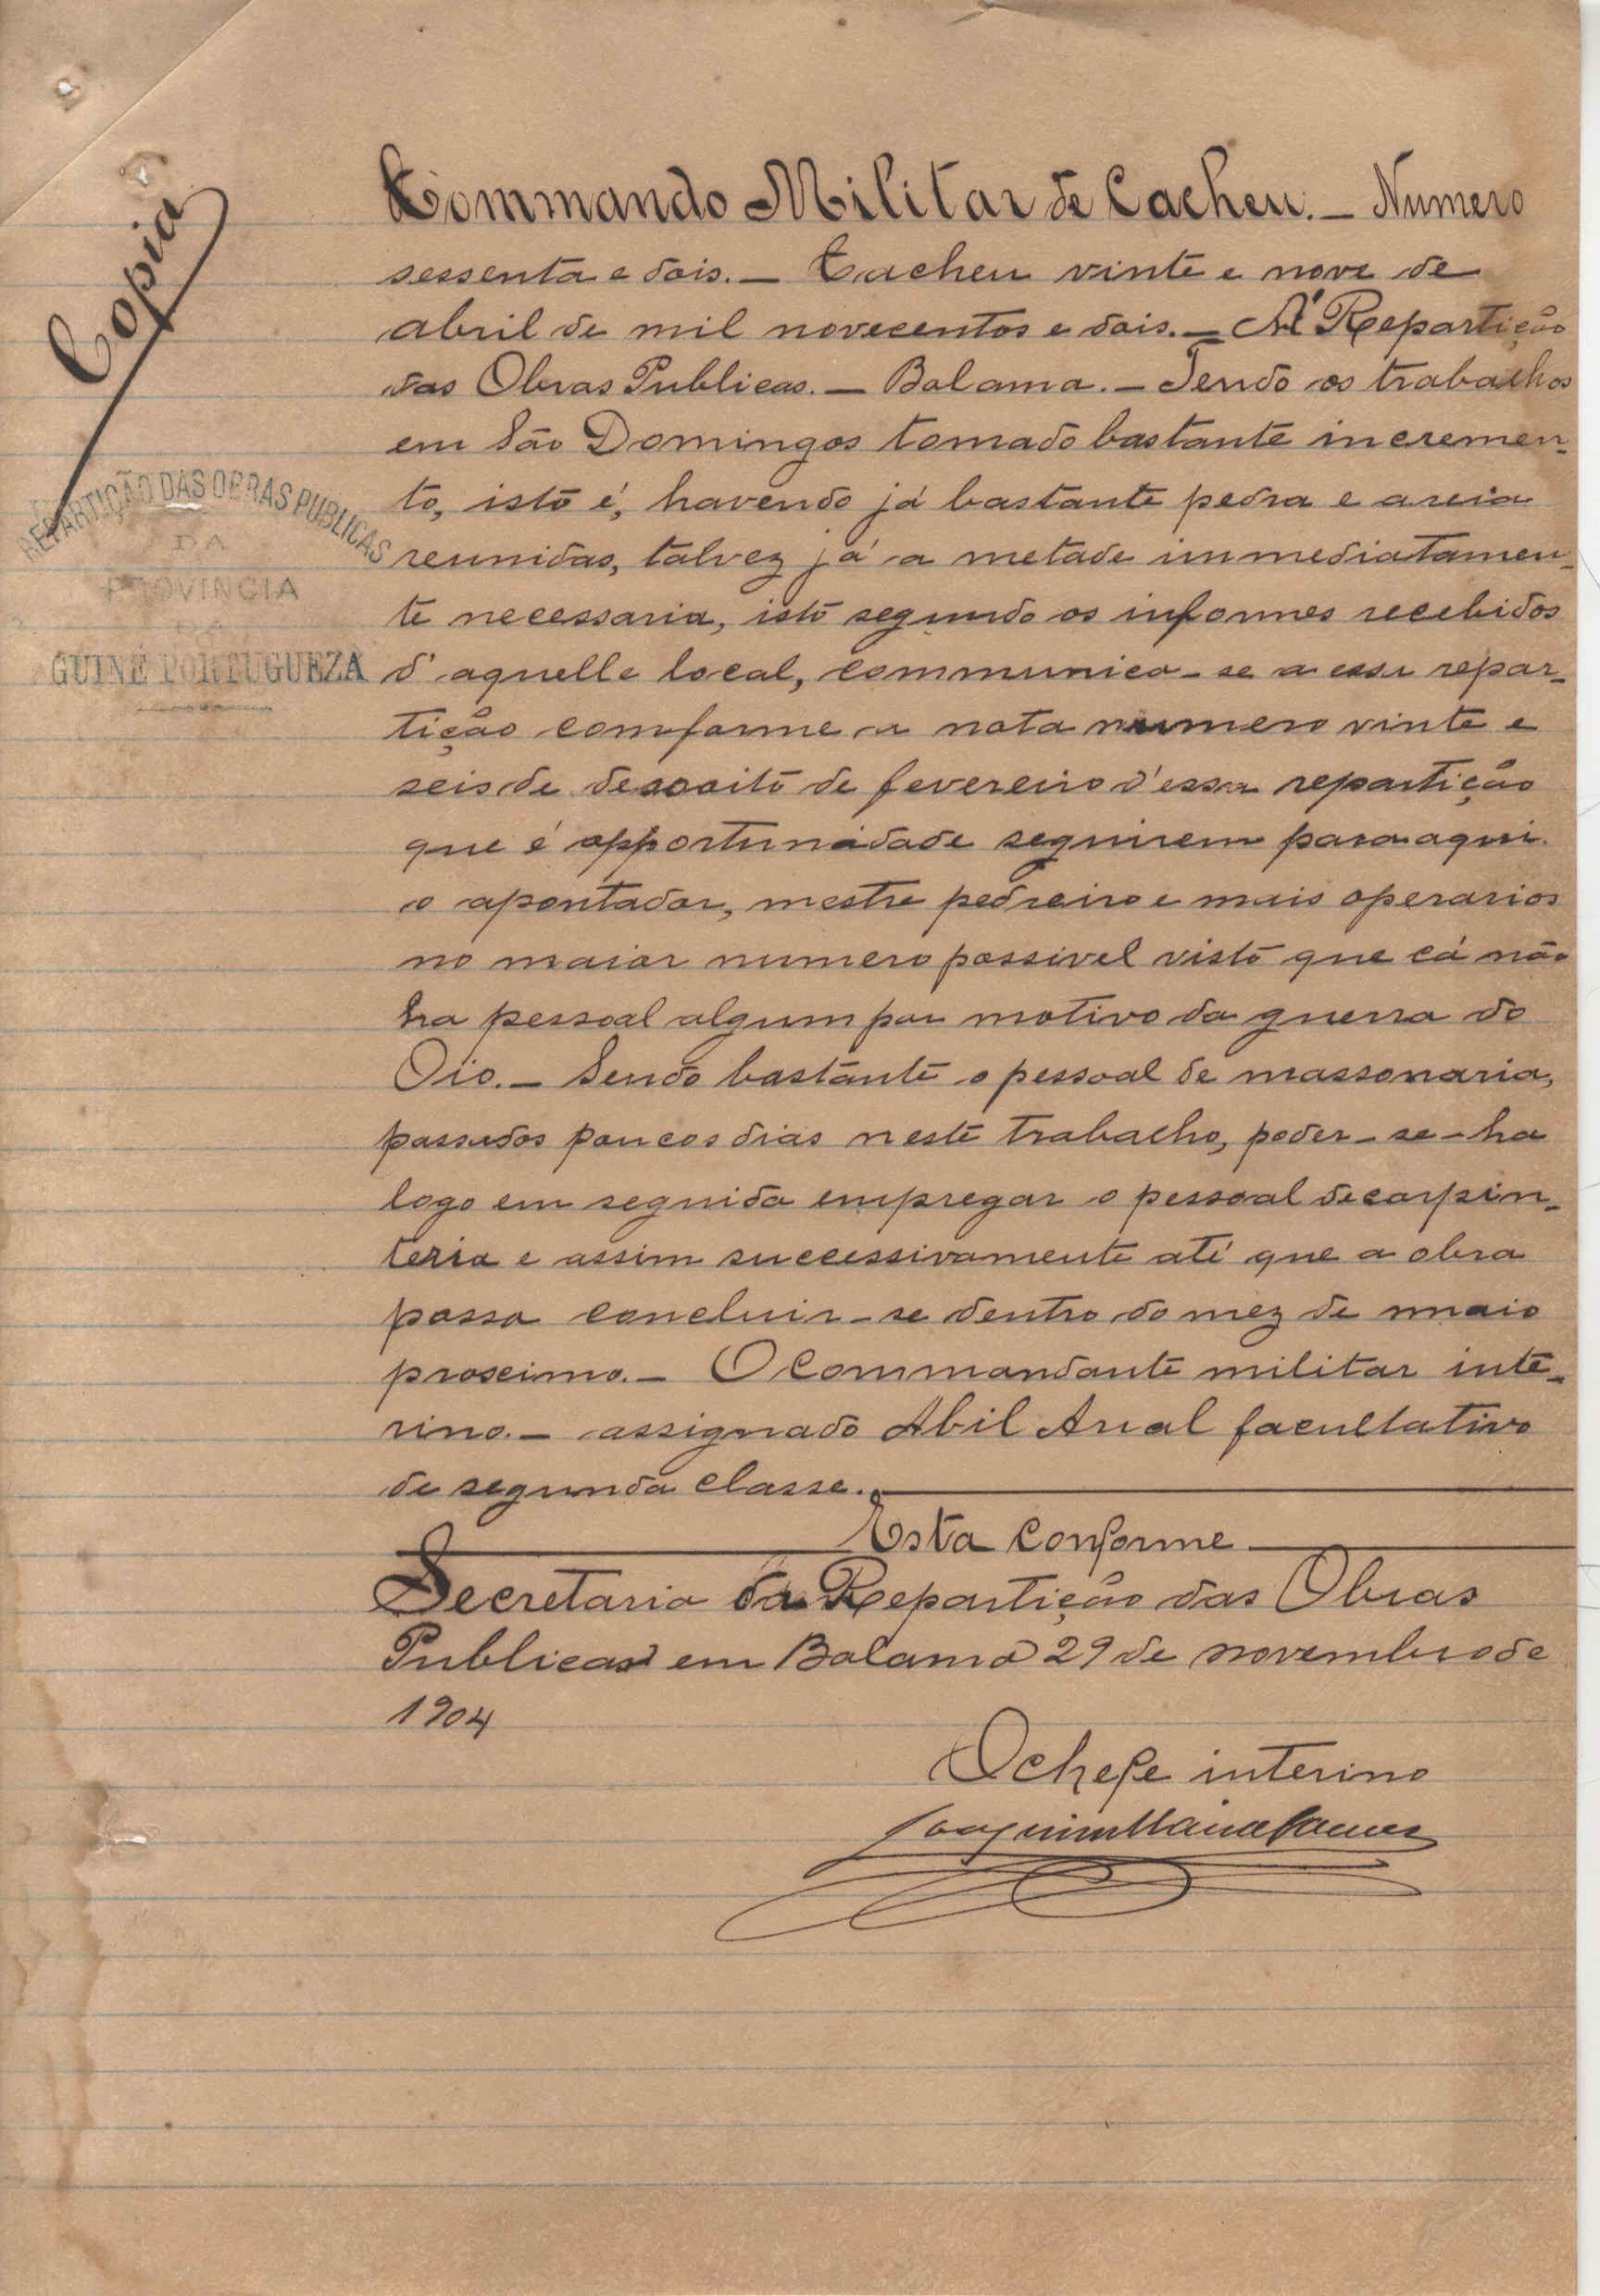 Copia
REPARTIÇÃO DAS OBRAS PUBLICAS
DA
PROVINCIA
DA
GUINÉ PORTUGUEZA
Commando Militar de Cacheu. — Numero
sessenta e dois. — Cacheu vinte e nove de
abril de mil novecentos e dois. — Á Repartição
das Obras Publicas. — Bolama. — Tendo os trabalhos
em São Domingos tomado bastante incremen-
to, isto é, havendo já bastante pedra e areia
reunidas, talvez já a metade immediatamen-
te necessaria, isto segundo os informes recebidos
d'aquelle local, communica-se a essa repar-
tição comforme a nota numero vinte e
seis de desoito de fevereiro d'essa repartição
que é opportunidade seguirem para aqui
o apontador, mestre pedreiro e mais operarios
no maior numero possivel visto que cá não
ha pessoal algum por motivo da guerra do
Oio. — Sendo bastante o pessoal de massonaria,
passados poucos dias neste trabalho, poder-se-ha
logo em seguida empregar o pessoal de carpin-
teria e assim successivamente até que a obra
possa concluir-se dentro do mez de maio
proximo. — O Commandante militar inte-
rino. — assignado Abil Anal facultativo
de segunda classe.
Esta conforme
Secretaria da Repartição das Obras
Publicas em Bolama 29 de novembro de
1904
O chefe interino
Joaquim